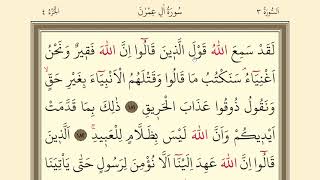 اَلسُّورَةُ ٣
سُورَةُ اٰلِ عِمْرٰنَ
اَلْجُزْءُ ٤
لَقَدْ سَمِعَ اللّٰهُ قَوْلَ الَّذٖينَ قَالُٓوا اِنَّ اللّٰهَ فَقٖيرٌ وَنَحْنُ
اَغْنِيَٓاءُۢ سَنَكْتُبُ مَا قَالُوا وَقَتْلَهُمُ الْاَنْبِيَٓاءَ بِغَيْرِ حَقٍّۙ
وَنَقُولُ ذُوقُوا عَذَابَ الْحَرٖيقِ ﴿١٨١﴾ ذٰلِكَ بِمَا قَدَّمَتْ
اَيْدٖيكُمْ وَاَنَّ اللّٰهَ لَيْسَ بِظَلَّامٍ لِلْعَبٖيدِۚ ﴿١٨٢﴾ اَلَّذٖينَ
قَالُٓوا اِنَّ اللّٰهَ عَهِدَ اِلَيْنَٓا اَلَّا نُؤْمِنَ لِرَسُولٍ حَتّٰى يَأْتِيَنَا